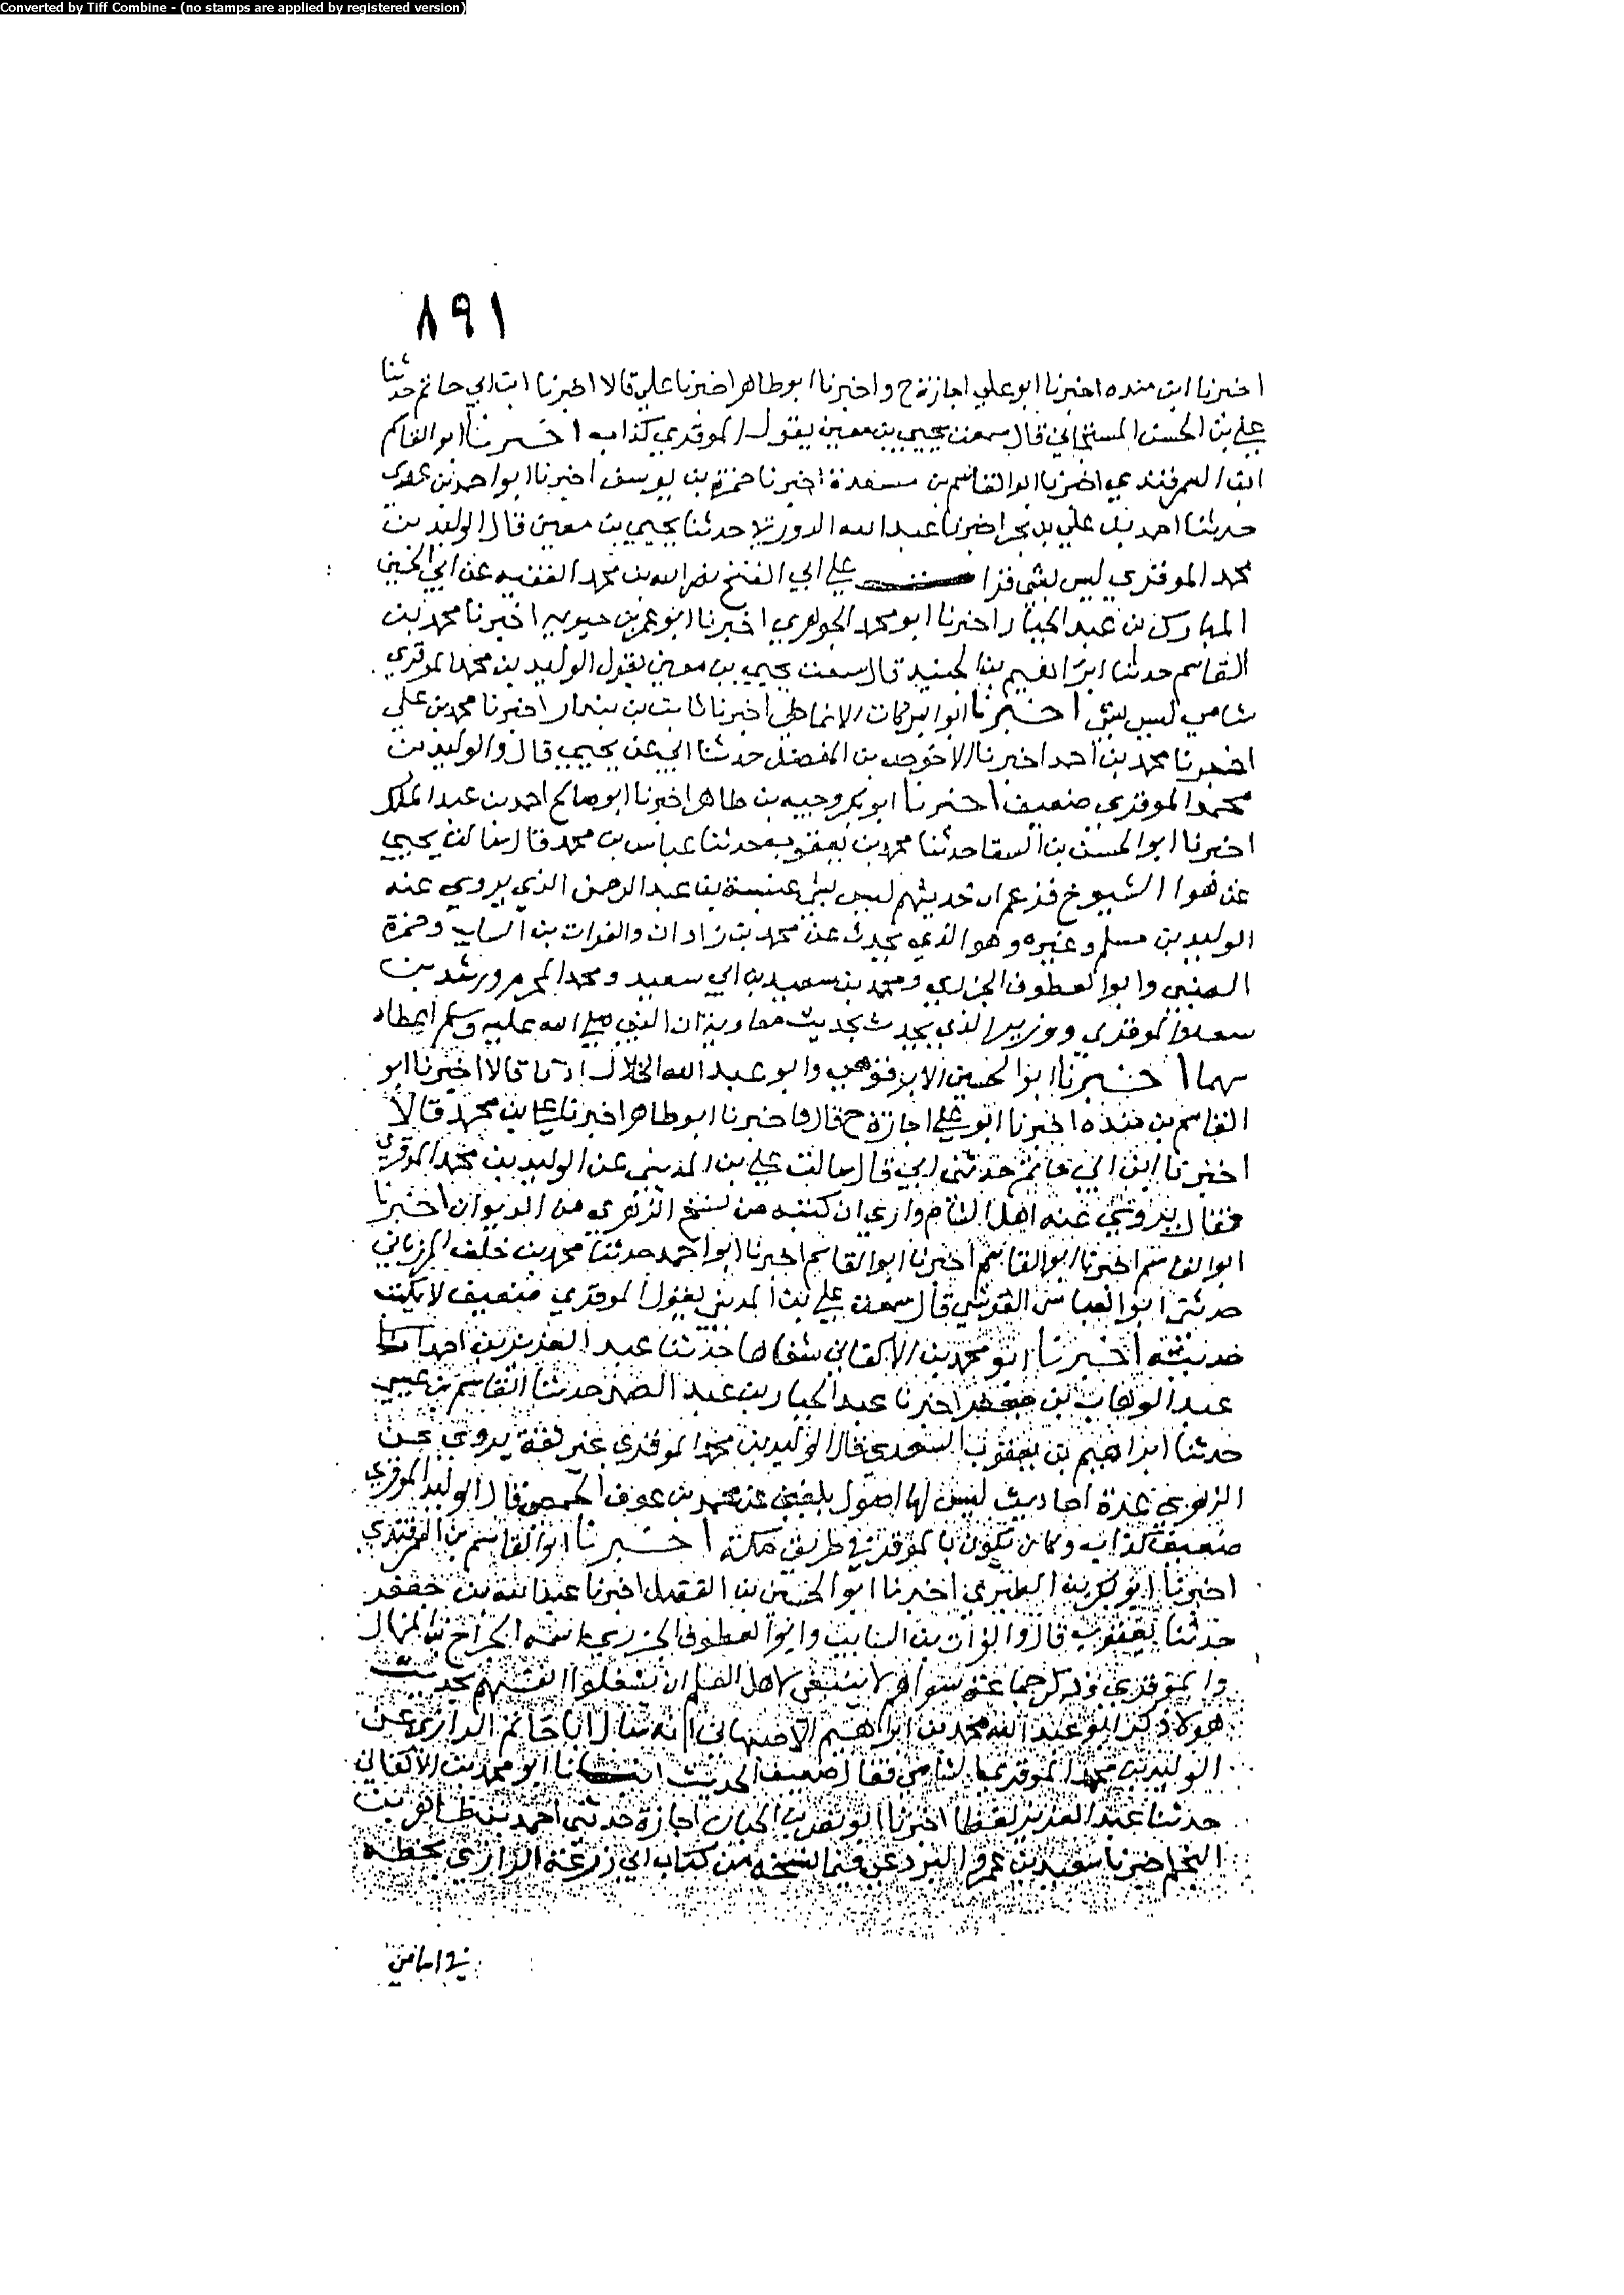 Converted by Tiff Combine - (no stamps are applied by registered version)
٨٩١
اخبرنا ابن منده اخبرنا ابو علي اجازة ح واخبرنا ابو طاهر اخبرنا علي قالا اخبرنا ابن ابي حاتم حدثنا
علي بن الحسن قال سمعت يحيى بن معين يقول الموقري كذاب اخبرنا ابو القاسم
ابن السمرقندي اخبرنا ابو القاسم بن مسعدة اخبرنا حمزة بن يوسف اخبرنا ابو احمد بن عدي
حدثنا احمد بن علي بن بحر اخبرنا عبد الله الدورقي حدثنا يحيى بن معين قال الوليد بن
محمد الموقري ليس بشي قرا علي ابي الفتح نصر الله بن محمد الفقيه عن ابي الحسين
المبارك بن عبد الجبار اخبرنا ابو محمد الجوهري اخبرنا ابو عمر بن حيويه اخبرنا محمد بن
القاسم حدثنا ابراهيم بن الجنيد قال سمعت يحيى بن معين يقول الوليد بن محمد الموقري
شامي ليس بشي اخبرنا ابو البركات الانماطي اخبرنا ثابت بن بندار اخبرنا محمد بن علي
اخبرنا محمد بن احمد اخبرنا الاحوص بن المفضل حدثنا ابي عن يحيى قال والوليد بن
محمد الموقري ضعيف اخبرنا ابو بكر وجيه بن طاهر اخبرنا ابو صالح احمد بن عبد الملك
اخبرنا ابو الحسن بن السقا حدثنا محمد بن يعقوب حدثنا عباس بن محمد قال سالت يحيى
عن هوا الشيوخ فزعم ان حديثهم ليس بشي عنبسة بن عبد الرحمن الذي يروي عنه
الوليد بن مسلم وغيره وهو الذي يحدث عن محمد بن زاذان والفرات بن السايب وحمزة
وابو العطوف الجزري ومحمد بن سعيد بن ابي سعيد ومحمد المحرم ورشدين بن
سعد والموقري الذي يحدث بحديث معاوية ان النبي صلى الله عليه وسلم
سهما اخبرنا ابو الحسين وابو عبد الله الخلال اذنا قالا اخبرنا ابو
القاسم بن منده اخبرنا ابو علي اجازة ح قال واخبرنا ابو طاهر اخبرنا علي بن محمد قالا
اخبرنا ابن ابي حاتم حدثني ابي قال سالت علي بن المديني عن الوليد بن محمد الموقري
فقال يروي عنه اهل الشام واري ان كتبه من نسخ الزهري من الديوان اخبرنا
ابو القاسم اخبرنا ابو القاسم اخبرنا ابو القاسم اخبرنا ابو احمد حدثنا محمد بن خلف المرزباني
حدثني ابو العباس القرشي قال سمعت علي بن المديني يقول الموقري ضعيف لا يكتب
حديثه اخبرنا ابو محمد بن الاكفاني شفاها حدثنا عبد العزيز بن احمد
عبد الوهاب بن جعفر اخبرنا عبد الجبار بن عبد الصمد حدثنا القاسم بن عيسى
حدثنا ابراهيم بن يعقوب السعدي قال الوليد بن محمد الموقري غير ثقة يروي عن
الزهري عدة احاديث ليس لها اصول بلغني عن محمد بن عوف الحمصي قال الوليد الموقري
ضعيف كذاب وكان يكون بالموقر في طريق مكة اخبرنا ابو القاسم بن السمرقندي
اخبرنا ابو بكر بن الطبري اخبرنا ابو الحسين بن الفضل اخبرنا عبد الله بن جعفر
حدثنا يعقوب قال والفرات بن السايب وابو العطوف الجزري اسمه الجراح بن المنهال
والموقري وذكر جماعة سواهم لا ينبغي لاهل العلم ان يشغلوا انفسهم بحديث
هولا ذكر ابو عبد الله محمد بن ابراهيم الاصبهاني انه سال ابا حاتم الرازي عن
الوليد بن محمد الموقري الشامي فقال ضعيف الحديث ابو محمد بن الاكفاني
حدثنا عبد العزيز لفظا اخبرنا ابو نصر بن الجبان اجازة حدثني احمد بن طاهر بن
النجم اخبرنا سعيد بن عمرو البردعي فيما نسخه من كتاب ابي زرعة الرازي بخطه
في اسامي